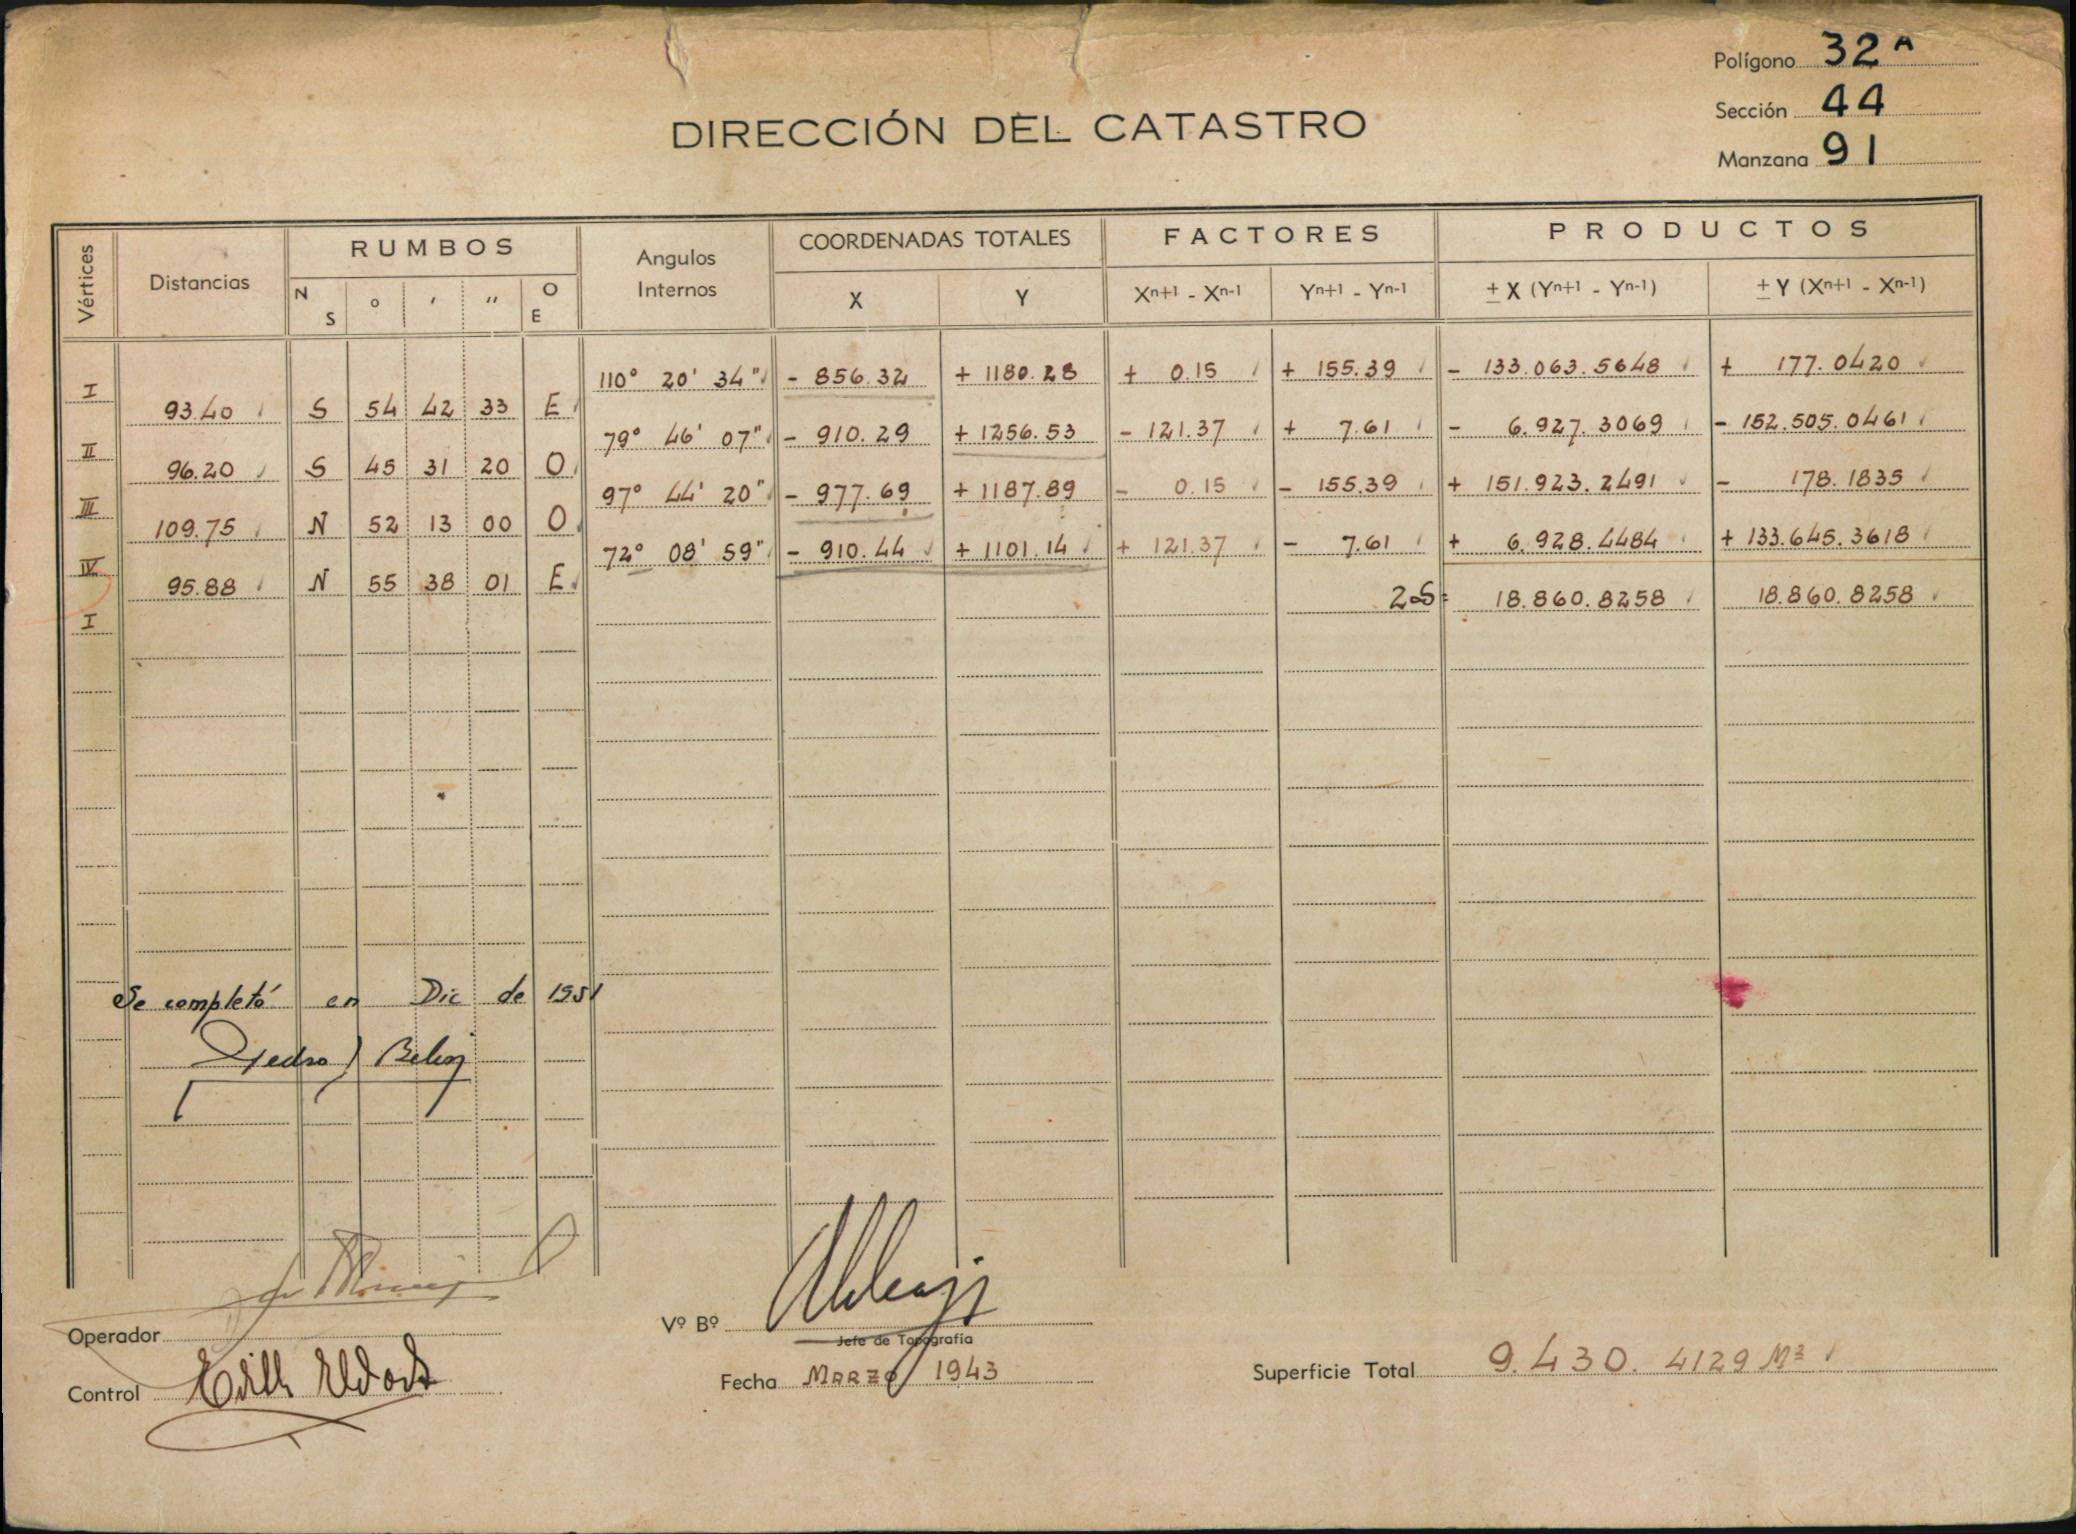 Polígono 32 A
Sección 44
Manzana 91
DIRECCIÓN DEL CATASTRO
Vértices Distancias RUMBOS Angulos Internos COORDENADAS TOTALES FACTORES PRODUCTOS
N S ° ' " O E X Y Xⁿ⁺¹ - Xⁿ⁻¹ Yⁿ⁺¹ - Yⁿ⁻¹ ± X (Yⁿ⁺¹ - Yⁿ⁻¹) ± Y (Xⁿ⁺¹ - Xⁿ⁻¹)
I 110° 20' 34" - 856.32 + 1180.28 + 0.15 + 155.39 - 133.063.5648 + 177.0420
93.40 S 54 42 33 E
II 79° 46' 07" - 910.29 + 1256.53 - 121.37 + 7.61 - 6.927.3069 - 152.505.0461
96.20 S 45 31 20 O
III 97° 44' 20" - 977.69 + 1187.89 - 0.15 - 155.39 + 151.923.2491 - 178.1835
109.75 N 52 13 00 O
IV 72° 08' 59" - 910.44 + 1101.14 + 121.37 - 7.61 + 6.928.4484 + 133.645.3618
95.88 N 55 38 01 E
I 2S= 18.860.8258 18.860.8258
Se completó en Dic de 1951
Pedro
Operador
Control
Vº Bº
Jefe de Topografía
Fecha MARZO 1943
Superficie Total 9.430.4129 M²